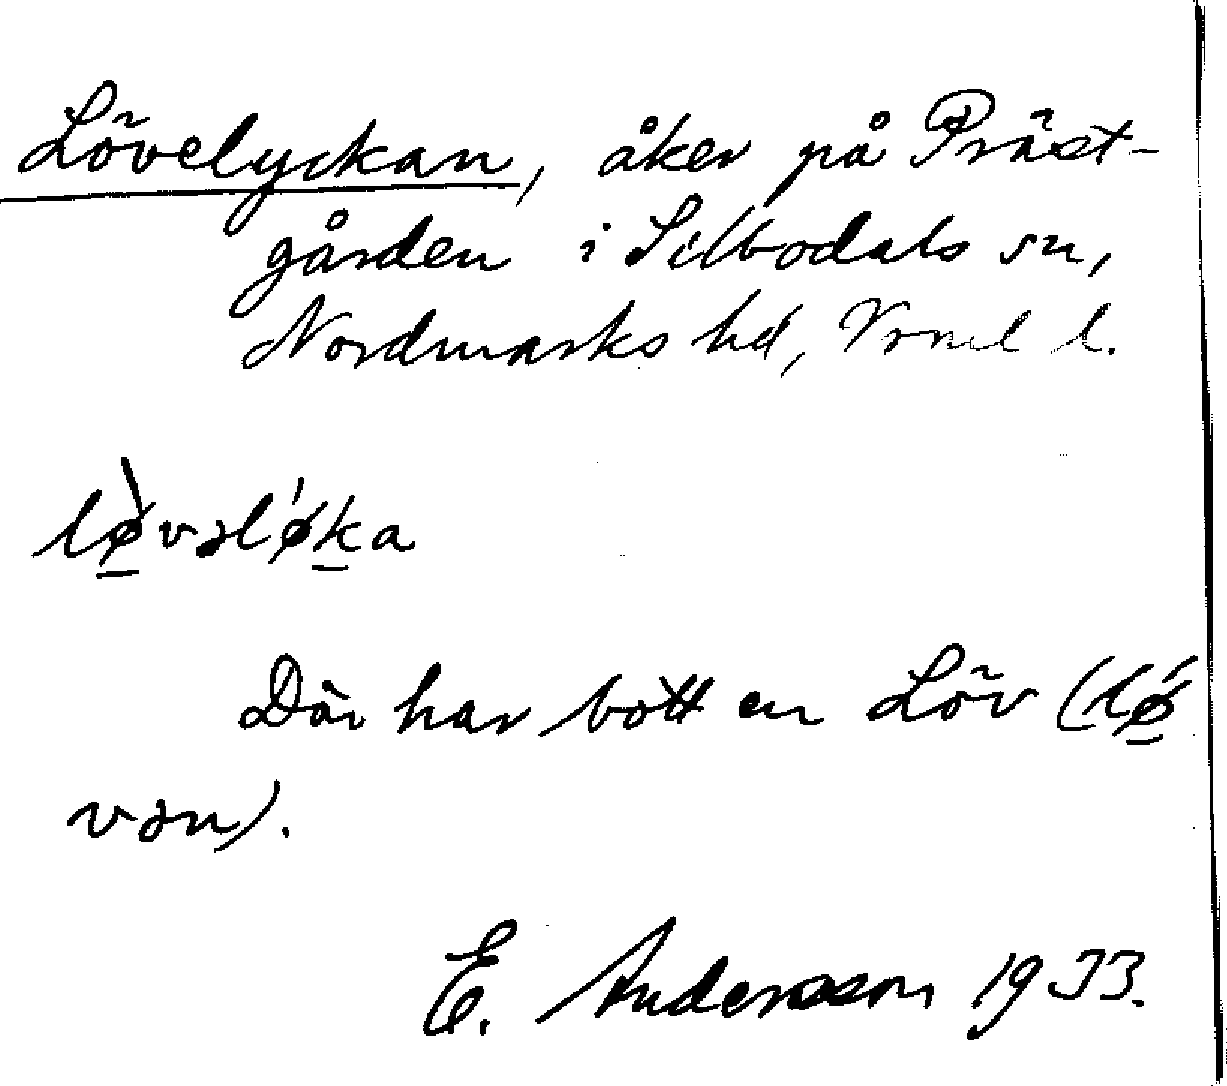 Lövelyckan, åker på Präst-
gården i Silbodals sn,
Nordmarks hd, Vrml l.
lø̱̀vəlǿḵa
Där har bott en Löv (lǿ̱
vən).
E. Andersson 1933.